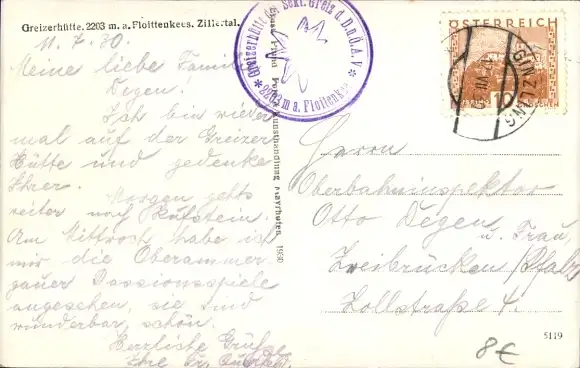 Greizerhütte, 2203 m. a. Floittenkees, Zillertal.
11.7.30.
Meine liebe Familie
Degen.
Ich bin wieder
mal auf der Greizer
Hütte und gedenke
Ihrer.
Morgen gehts
weiter nach Kufstein.
Am Mittwoch habe ich
mir die Oberammer
gauer Passionsspiele
angesehen, sie sind
wunderbar schön.
Herzliche Grüße
Ihre
Greizerhütte der Sekt. Greiz d. D.u.Ö.A.V.
2203 m a. Floitten
Kunsthandlung Mayrhofen 1930
ÖSTERREICH
10
GROSCHEN
GINZLING
Herrn
Oberbahninspektor
Otto Degen
u. Frau,
Zweibrücken (Pfalz)
Zollstraße 4.
5119
8€